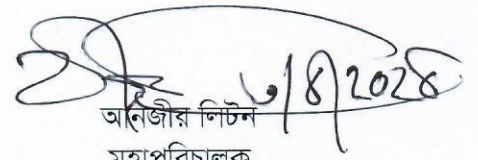 ৩/৪/২০২৪
আনজীর লিটন
মহাপরিচালক